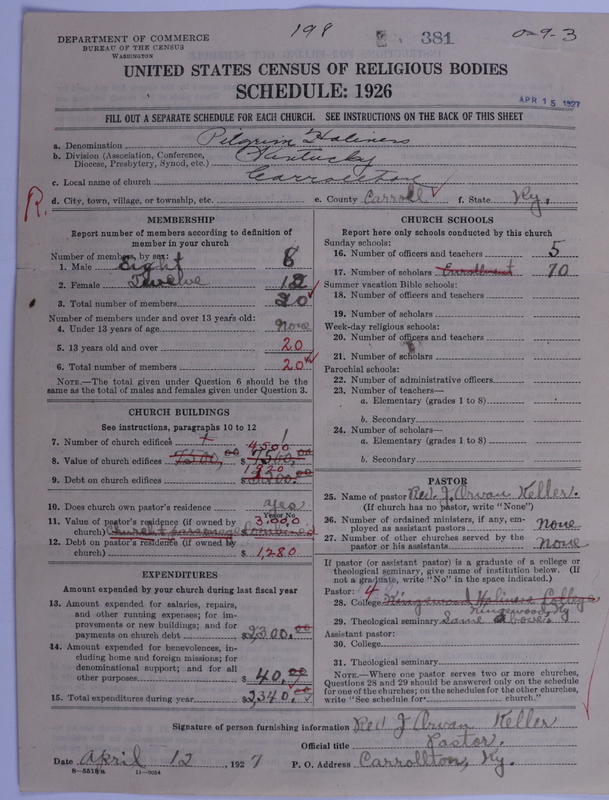 198 381 0-9-3
DEPARTMENT OF COMMERCE
BUREAU OF THE CENSUS
WASHINGTON
UNITED STATES CENSUS OF RELIGIOUS BODIES
SCHEDULE: 1926
APR 15 1927
FILL OUT A SEPARATE SCHEDULE FOR EACH CHURCH. SEE INSTRUCTIONS ON THE BACK OF THIS SHEET
a. Denomination Pilgrim Holiness
b. Division (Association, Conference, Diocese, Presbytery, Synod, etc.) Kentucky
c. Local name of church Carrollton
R. d. City, town, village, or township, etc. e. County Carroll f. State Ky.
MEMBERSHIP
Report number of members according to definition of
member in your church
Number of members, by sex:
1. Male Eight 8
2. Female Twelve 12
3. Total number of members 20
Number of members under and over 13 years old:
4. Under 13 years of age None
5. 13 years old and over 20
6. Total number of members 20
NOTE.—The total given under Question 6 should be
same as the total of males and females given under Question 3.
CHURCH BUILDINGS
See instructions, paragraphs 10 to 12
7. Number of church edifices 1
4500
8. Value of church edifices 7500.00 $ 7500.00
1920
9. Debt on church edifices $
10. Does church own pastor's residence yes
Yes or No
11. Value of pastor's residence (if owned by 3,000
church) Church & parsonage Combined
12. Debt on pastor's residence (if owned by
church) $ 1,280
EXPENDITURES
Amount expended by your church during last fiscal year
13. Amount expended for salaries, repairs,
and other running expenses; for im-
provements or new buildings; and for
payments on church debt $2300.00
14. Amount expended for benevolences, in-
cluding home and foreign missions; for
denominational support; and for all
other purposes $ 40.00
15. Total expenditures during year $2340.00
CHURCH SCHOOLS
Report here only schools conducted by this church
Sunday schools:
16. Number of officers and teachers 5
17. Number of scholars Enrollment 70
Summer vacation Bible schools:
18. Number of officers and teachers
19. Number of scholars
Week-day religious schools:
20. Number of officers and teachers
21. Number of scholars
Parochial schools:
22. Number of administrative officers
23. Number of teachers—
a. Elementary (grades 1 to 8)
b. Secondary
24. Number of scholars—
a. Elementary (grades 1 to 8)
b. Secondary
PASTOR
25. Name of pastor Rev. J. Orvan Keller.
(If church has no pastor, write "None")
26. Number of ordained ministers, if any, em-
ployed as assistant pastors None
27. Number of other churches served by the
pastor or his assistants None
If pastor (or assistant pastor) is a graduate of a college or
theological seminary, give name of institution below. (If
not a graduate, write "No" in the space indicated.)
Pastor: 4
28. College Kingswood Holiness College
Kingswood, Ky
29. Theological seminary Same Above.
Assistant pastor:
30. College
31. Theological seminary
NOTE.—Where one pastor serves two or more churches,
Questions 28 and 29 should be answered only on the schedule
for one of the churches; on the schedules for the other churches,
write "See schedule for church."
Signature of person furnishing information Rev J Orvan Keller
Official title Pastor.
Date April 12, 1927 P. O. Address Carrollton, Ky.
8—5518a 11—9054